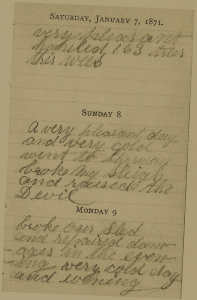 SATURDAY, JANUARY 7, 1871.
very pleasant
163
this week
SUNDAY 8
A very pleasant day
and very cold
went to
broke my Sleigh
and raised the
Devil
MONDAY 9
broke our Sled
and repaired dam-
ages in the even-
ing very cold day
and evening